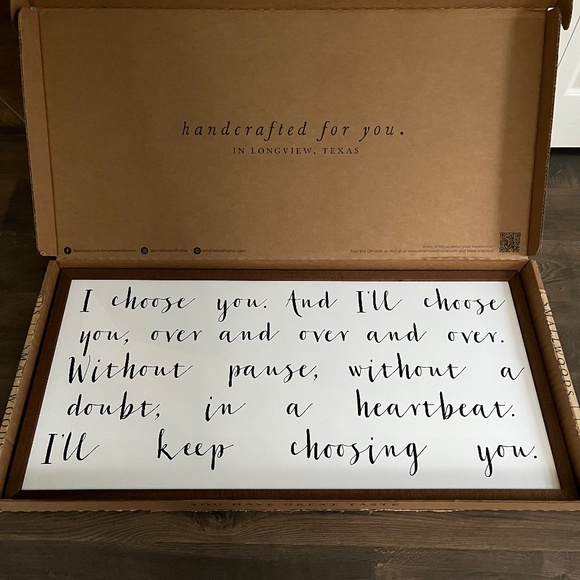 handcrafted for you.
IN LONGVIEW, TEXAS
I choose you. And I'll choose
you, over and over and over.
Without pause, without a
doubt, in a heartbeat.
I'll keep choosing you.
YOU HAVE GREAT TASTE